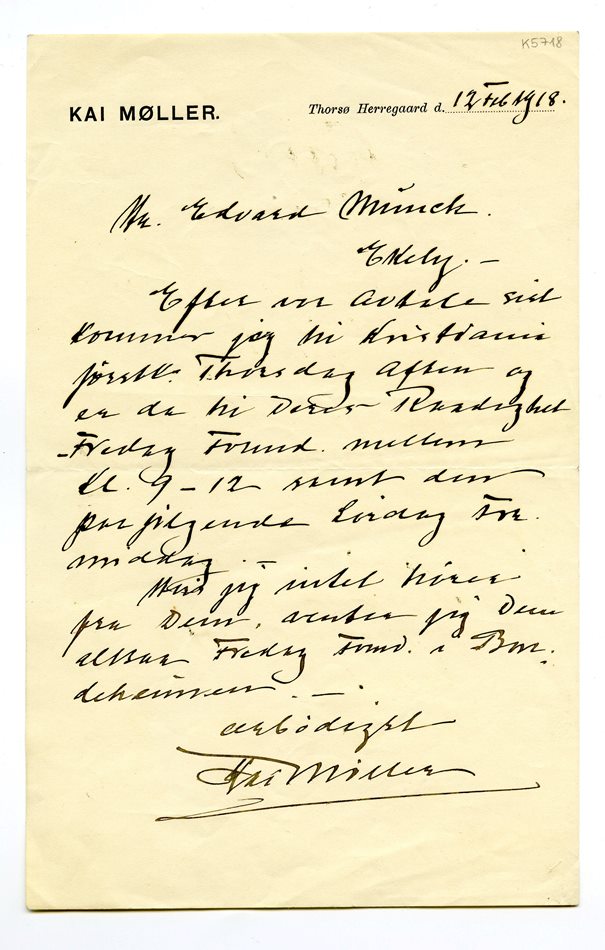 K5718
KAI MØLLER.
Thorsø Herregaard d. 12 Feb 1918.
Hr. Edvard Munch.
Ekely. –
Efter vor Avtale sidst
kommer jeg til Kristiania
førstk. Thorsdag Aften og
er da til Deres Raadighet
Fredag Formd. mellem
Kl. 9 – 12 samt den
paafølgende Lørdag For
middag. –
Hvis jeg intet hører
fra Dem, venter jeg Dem
altsaa Fredag Formd. i Bon
deheimen. – .
ærbødigst
Kai Møller